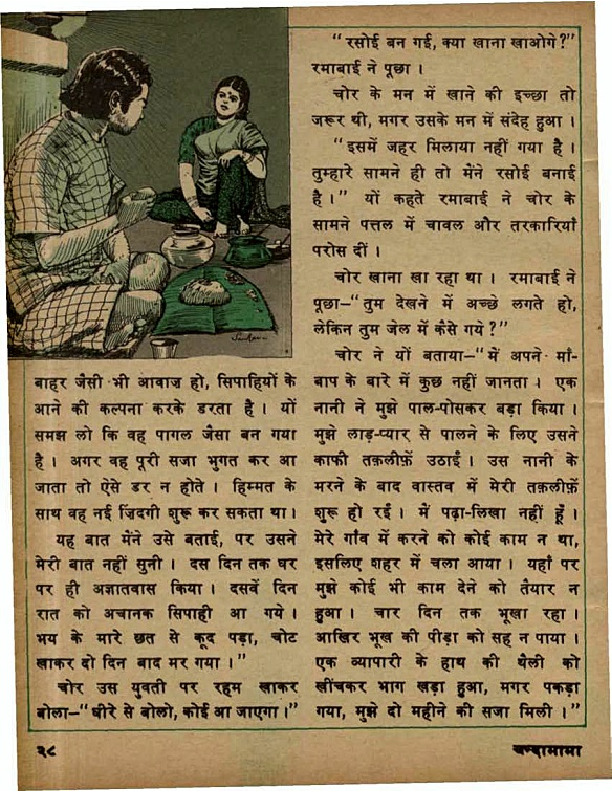 बाहर जैसी भी आवाज़ हो, सिपाहियों के
आने की कल्पना करके डरता है। यों
समझ लो कि वह पागल जैसा बन गया
है। अगर वह पूरी सजा भुगत कर आ
जाता तो ऐसे डर न होते। हिम्मत के
साथ वह नई ज़िंदगी शुरू कर सकता था।
यह बात मेंने उसे बताई, पर उसने
मेरी बात नहीं सुनी। दस दिन तक घर
पर ही अज्ञातवास किया। दसवें दिन
रात को अचानक सिपाही आ गये।
भय के मारे छत से कूद पड़ा, चोट
खाकर दो दिन बाद मर गया।”
चोर उस युवती पर रहम खाकर
बोला–“धीरे से बोलो, कोई आ जाएगा।”
“रसोई बन गई, क्या खाना खाओगे?”
रमाबाई ने पूछा।
चोर के मन में खाने की इच्छा तो
जरूर थी, मगर उसके मन में संदेह हुआ।
“इसमें जहर मिलाया नहीं गया है।
तुम्हारे सामने ही तो मेंने रसोई बनाई
है।” यों कहते रमाबाई ने चोर के
सामने पत्तल में चावल और तरकारियाँ
परोस दीं।
चोर खाना खा रहा था। रमाबाई ने
पूछा–“तुम देखने में अच्छे लगते हो,
लेकिन तुम जेल में कैसे गये?”
चोर ने यों बताया–“में अपने माँ-
बाप के बारे में कुछ नहीं जानता। एक
नानी ने मुझे पाल-पोसकर बड़ा किया।
मुझे लाड़-प्यार से पालने के लिए उसने
काफी तक़लीफ़ें उठाईं। उस नानी के
मरने के बाद वास्तव में मेरी तक़लीफ़ें
शुरू हो गईं। में पढ़ा-लिखा नहीं हूँ।
मेरे गाँव में करने को कोई काम न था,
इसलिए शहर में चला आया। यहाँ पर
मुझे कोई भी काम देने को तैयार न
हुआ। चार दिन तक भूखा रहा।
आखिर भूख की पीड़ा को सह न पाया।
एक व्यापारी के हाथ की थैली को
खींचकर भाग खड़ा हुआ, मगर पकड़ा
गया, मुझे दो महीने की सजा मिली।”
२८
चन्दामामा